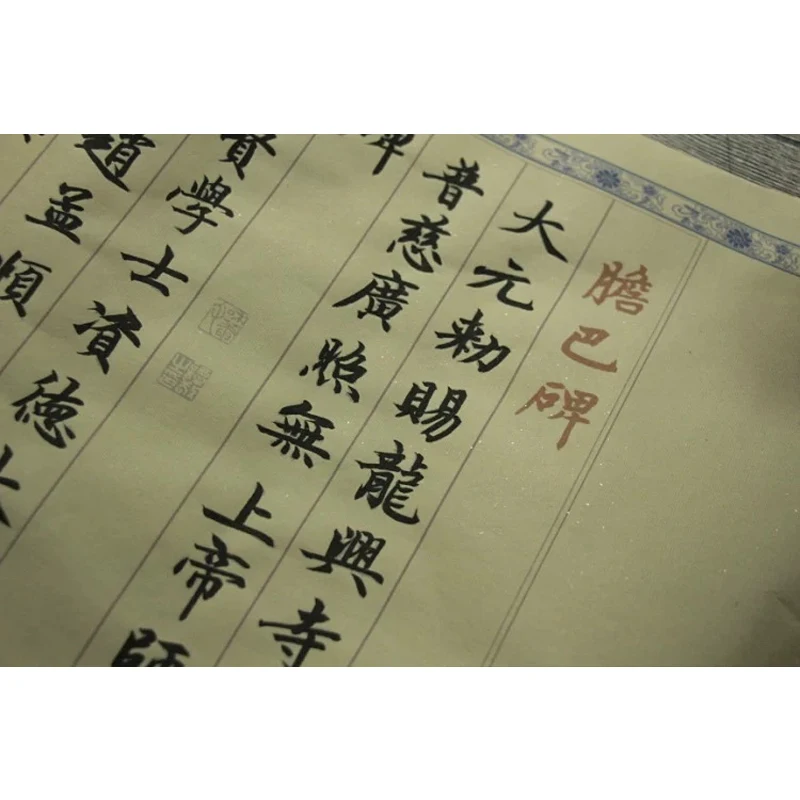 膽巴碑
大元勅賜龍興寺
普慈廣照無上帝師
碑
賢學士資德大
趙孟頫